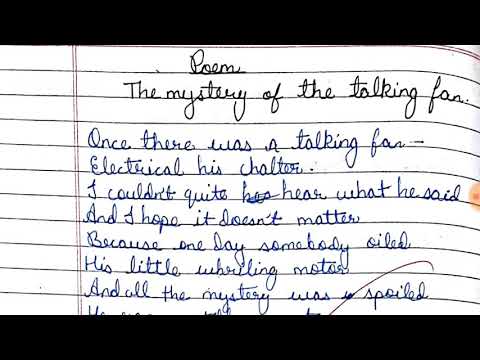 Poem
The mystery of the talking fan.
Once there was a talking fan —
Electrical his chatter.
I couldn't quite hear what he said
And I hope it doesn't matter
Because one day somebody oiled
His little whirling motor
And all the mystery was spoiled